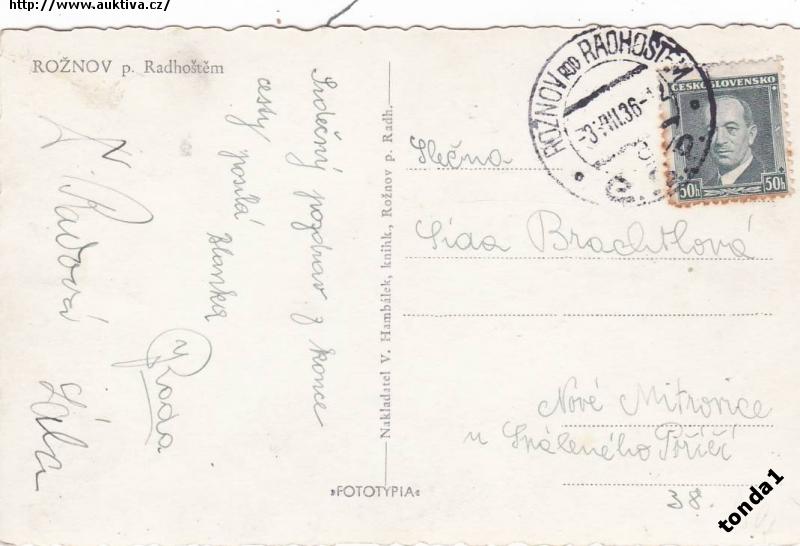 http://www.auktiva.cz/
ROŽNOV p. Radhoštěm
Srdečný pozdrav z konce
cesty posílá Blanka
Rada
Radová
Nakladatel V. Hambálek, knihk., Rožnov p. Radh.
»FOTOTYPIA«
ROŽNOV POD RADHOŠTĚM
ČESKOSLOVENSKO
50h 50h
Slečna
Sida Brachtlová
Nové Mitrovice
u Spáleného Poříčí
38.
tonda1